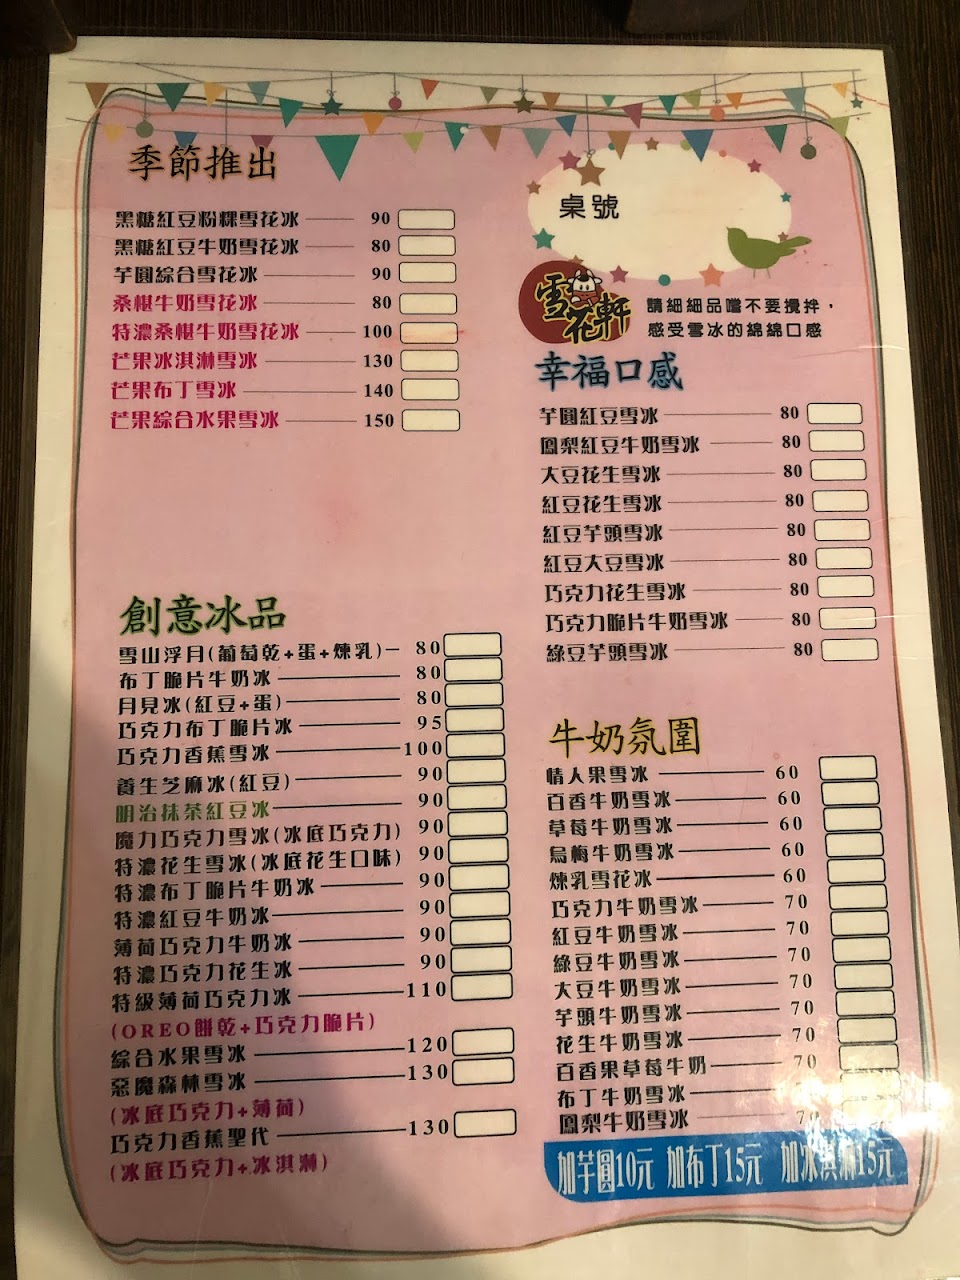 季節推出
黑糖紅豆粉粿雪花冰 90
黑糖紅豆牛奶雪花冰 80
芋圓綜合雪花冰 90
桑椹牛奶雪花冰 80
特濃桑椹牛奶雪花冰 100
芒果冰淇淋雪冰 130
芒果布丁雪冰 140
芒果綜合水果雪冰 150
創意冰品
雪山浮月(葡萄乾+蛋+煉乳) 80
布丁脆片牛奶冰 80
月見冰(紅豆+蛋) 80
巧克力布丁脆片冰 95
巧克力香蕉雪冰 100
養生芝麻冰(紅豆) 90
明治抹茶紅豆冰 90
魔力巧克力雪冰(冰底巧克力) 90
特濃花生雪冰(冰底花生口味) 90
特濃布丁脆片牛奶冰 90
特濃紅豆牛奶冰 90
薄荷巧克力牛奶冰 90
特濃巧克力花生冰 90
特級薄荷巧克力冰 110
(OREO餅乾+巧克力脆片)
綜合水果雪冰 120
惡魔森林雪冰 130
(冰底巧克力+薄荷)
巧克力香蕉聖代 130
(冰底巧克力+冰淇淋)
桌號
雪花軒
請細細品嚐不要攪拌，
感受雪冰的綿綿口感
幸福口感
芋圓紅豆雪冰 80
鳳梨紅豆牛奶雪冰 80
大豆花生雪冰 80
紅豆花生雪冰 80
紅豆芋頭雪冰 80
紅豆大豆雪冰 80
巧克力花生雪冰 80
巧克力脆片牛奶雪冰 80
綠豆芋頭雪冰 80
牛奶氛圍
情人果雪冰 60
百香牛奶雪冰 60
草莓牛奶雪冰 60
烏梅牛奶雪冰 60
煉乳雪花冰 60
巧克力牛奶雪冰 70
紅豆牛奶雪冰 70
綠豆牛奶雪冰 70
大豆牛奶雪冰 70
芋頭牛奶雪冰 70
花生牛奶雪冰 70
百香果草莓牛奶 70
布丁牛奶雪冰
鳳梨牛奶雪冰 70
加芋圓10元 加布丁15元 加冰淇淋15元